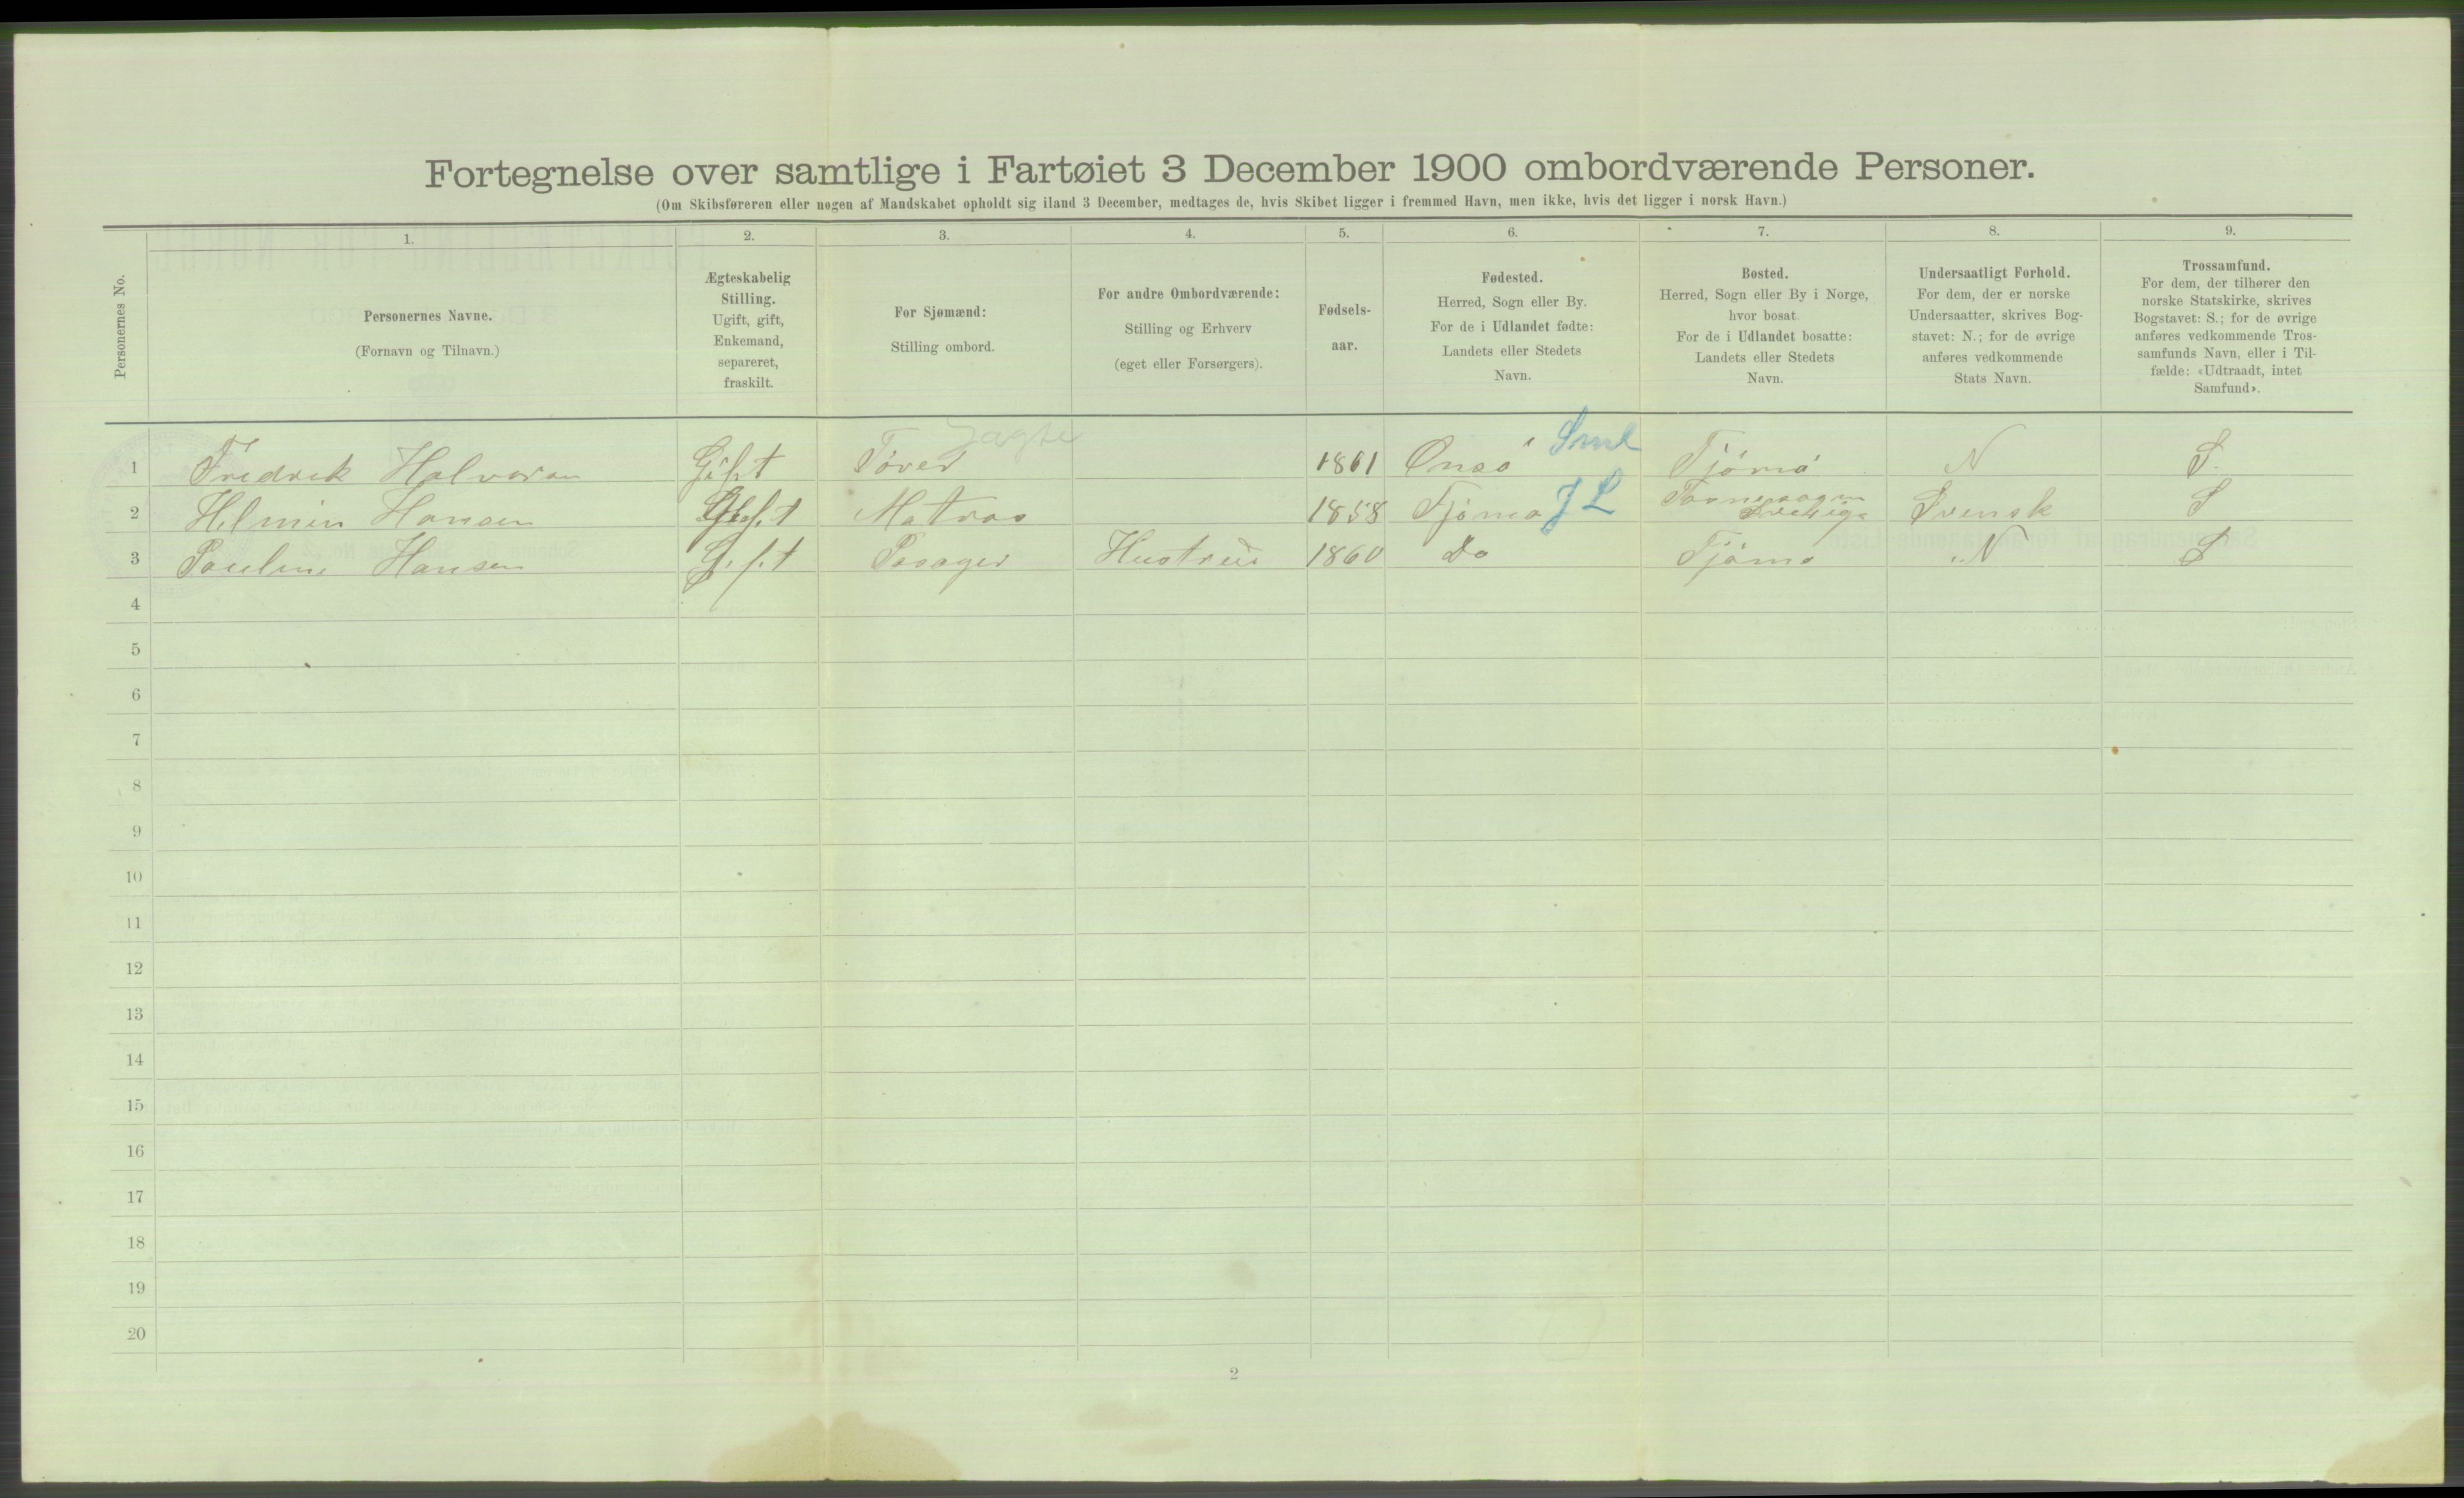 Fortegnelse over samtlige i Fartøiet 3 December 1900 ombordværende Personer.
(Om Skibsføreren eller nogen af Mandskabet opholdt sig iland 3 December, medtages de, hvis Skibet ligger i fremmed Havn, men ikke, hvis det ligger i norsk Havn.)
Personernes No.
1.
Personernes Navne.
(Fornavn og Tilnavn.)
2.
Ægteskabelig
Stilling.
Ugift, gift,
Enkemand,
separeret,
fraskilt.
3.
For Sjømænd:
Stilling ombord.
4.
For andre Ombordværende:
Stilling og Erhverv
(eget eller Forsørgers).
5.
Fødsels-
aar.
6.
Fødested.
Herred, Sogn eller By.
For de i Udlandet fødte:
Landets eller Stedets
Navn.
7.
Bosted.
Herred, Sogn eller By i Norge,
hvor bosat.
For de i Udlandet bosatte:
Landets eller Stedets
Navn.
8.
Undersaatligt Forhold.
For dem, der er norske
Undersaatter, skrives Bog-
stavet: N.; for de øvrige
anføres vedkommende
Stats Navn.
9.
Trossamfund.
For dem, der tilhører den
norske Statskirke, skrives
Bogstavet: S.; for de øvrige
anføres vedkommende Tros-
samfunds Navn, eller i Til-
fælde: «Udtraadt, intet
Samfund».
Jagte Sml
1 Fredrek Halvorsen Gift Fører 1861 Onsö Tjömö N S.
2 Hilmin Hansen Gift Matros 1858 Tjömö J L Sverige Svensk S
3 Pauline Hansen Gift Pasager Hustru 1860 Do Tjömö N S
4
5
6
7
8
9
10
11
12
13
14
15
16
17
18
19
20
2